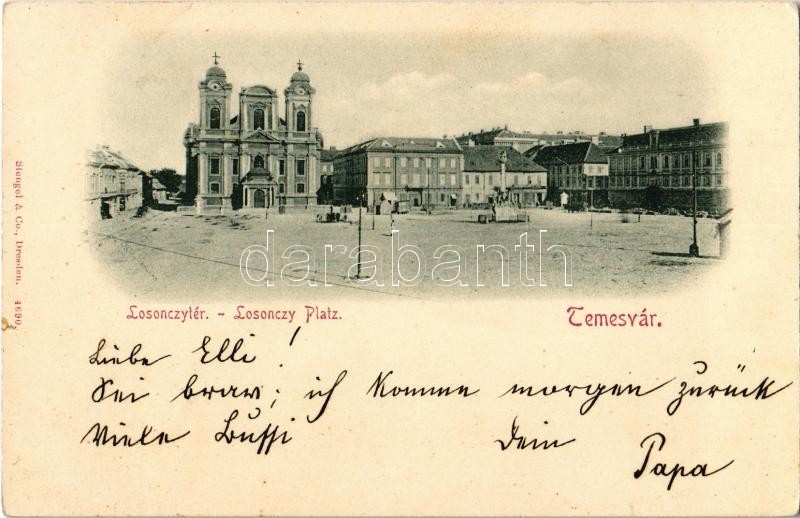 darabanth
Stengel & Co., Dresden. 4690
Losonczytér. - Losonczy Platz.
Temesvár.
Liebe Elli!
Sei brav; ich komme morgen zurück
Viele Bussi Dein
Papa